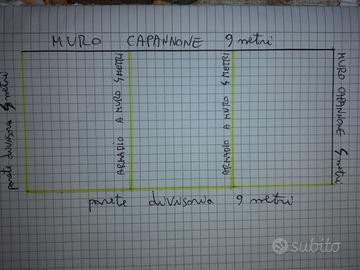 MURO CAPANNONE 9 metri
parete divisoria 5 metri
ARMADIO A MURO 5 METRI
ARMADIO A MURO 5 METRI
MURO CAPANNONE 5 metri
parete divisoria 9 metri
subito